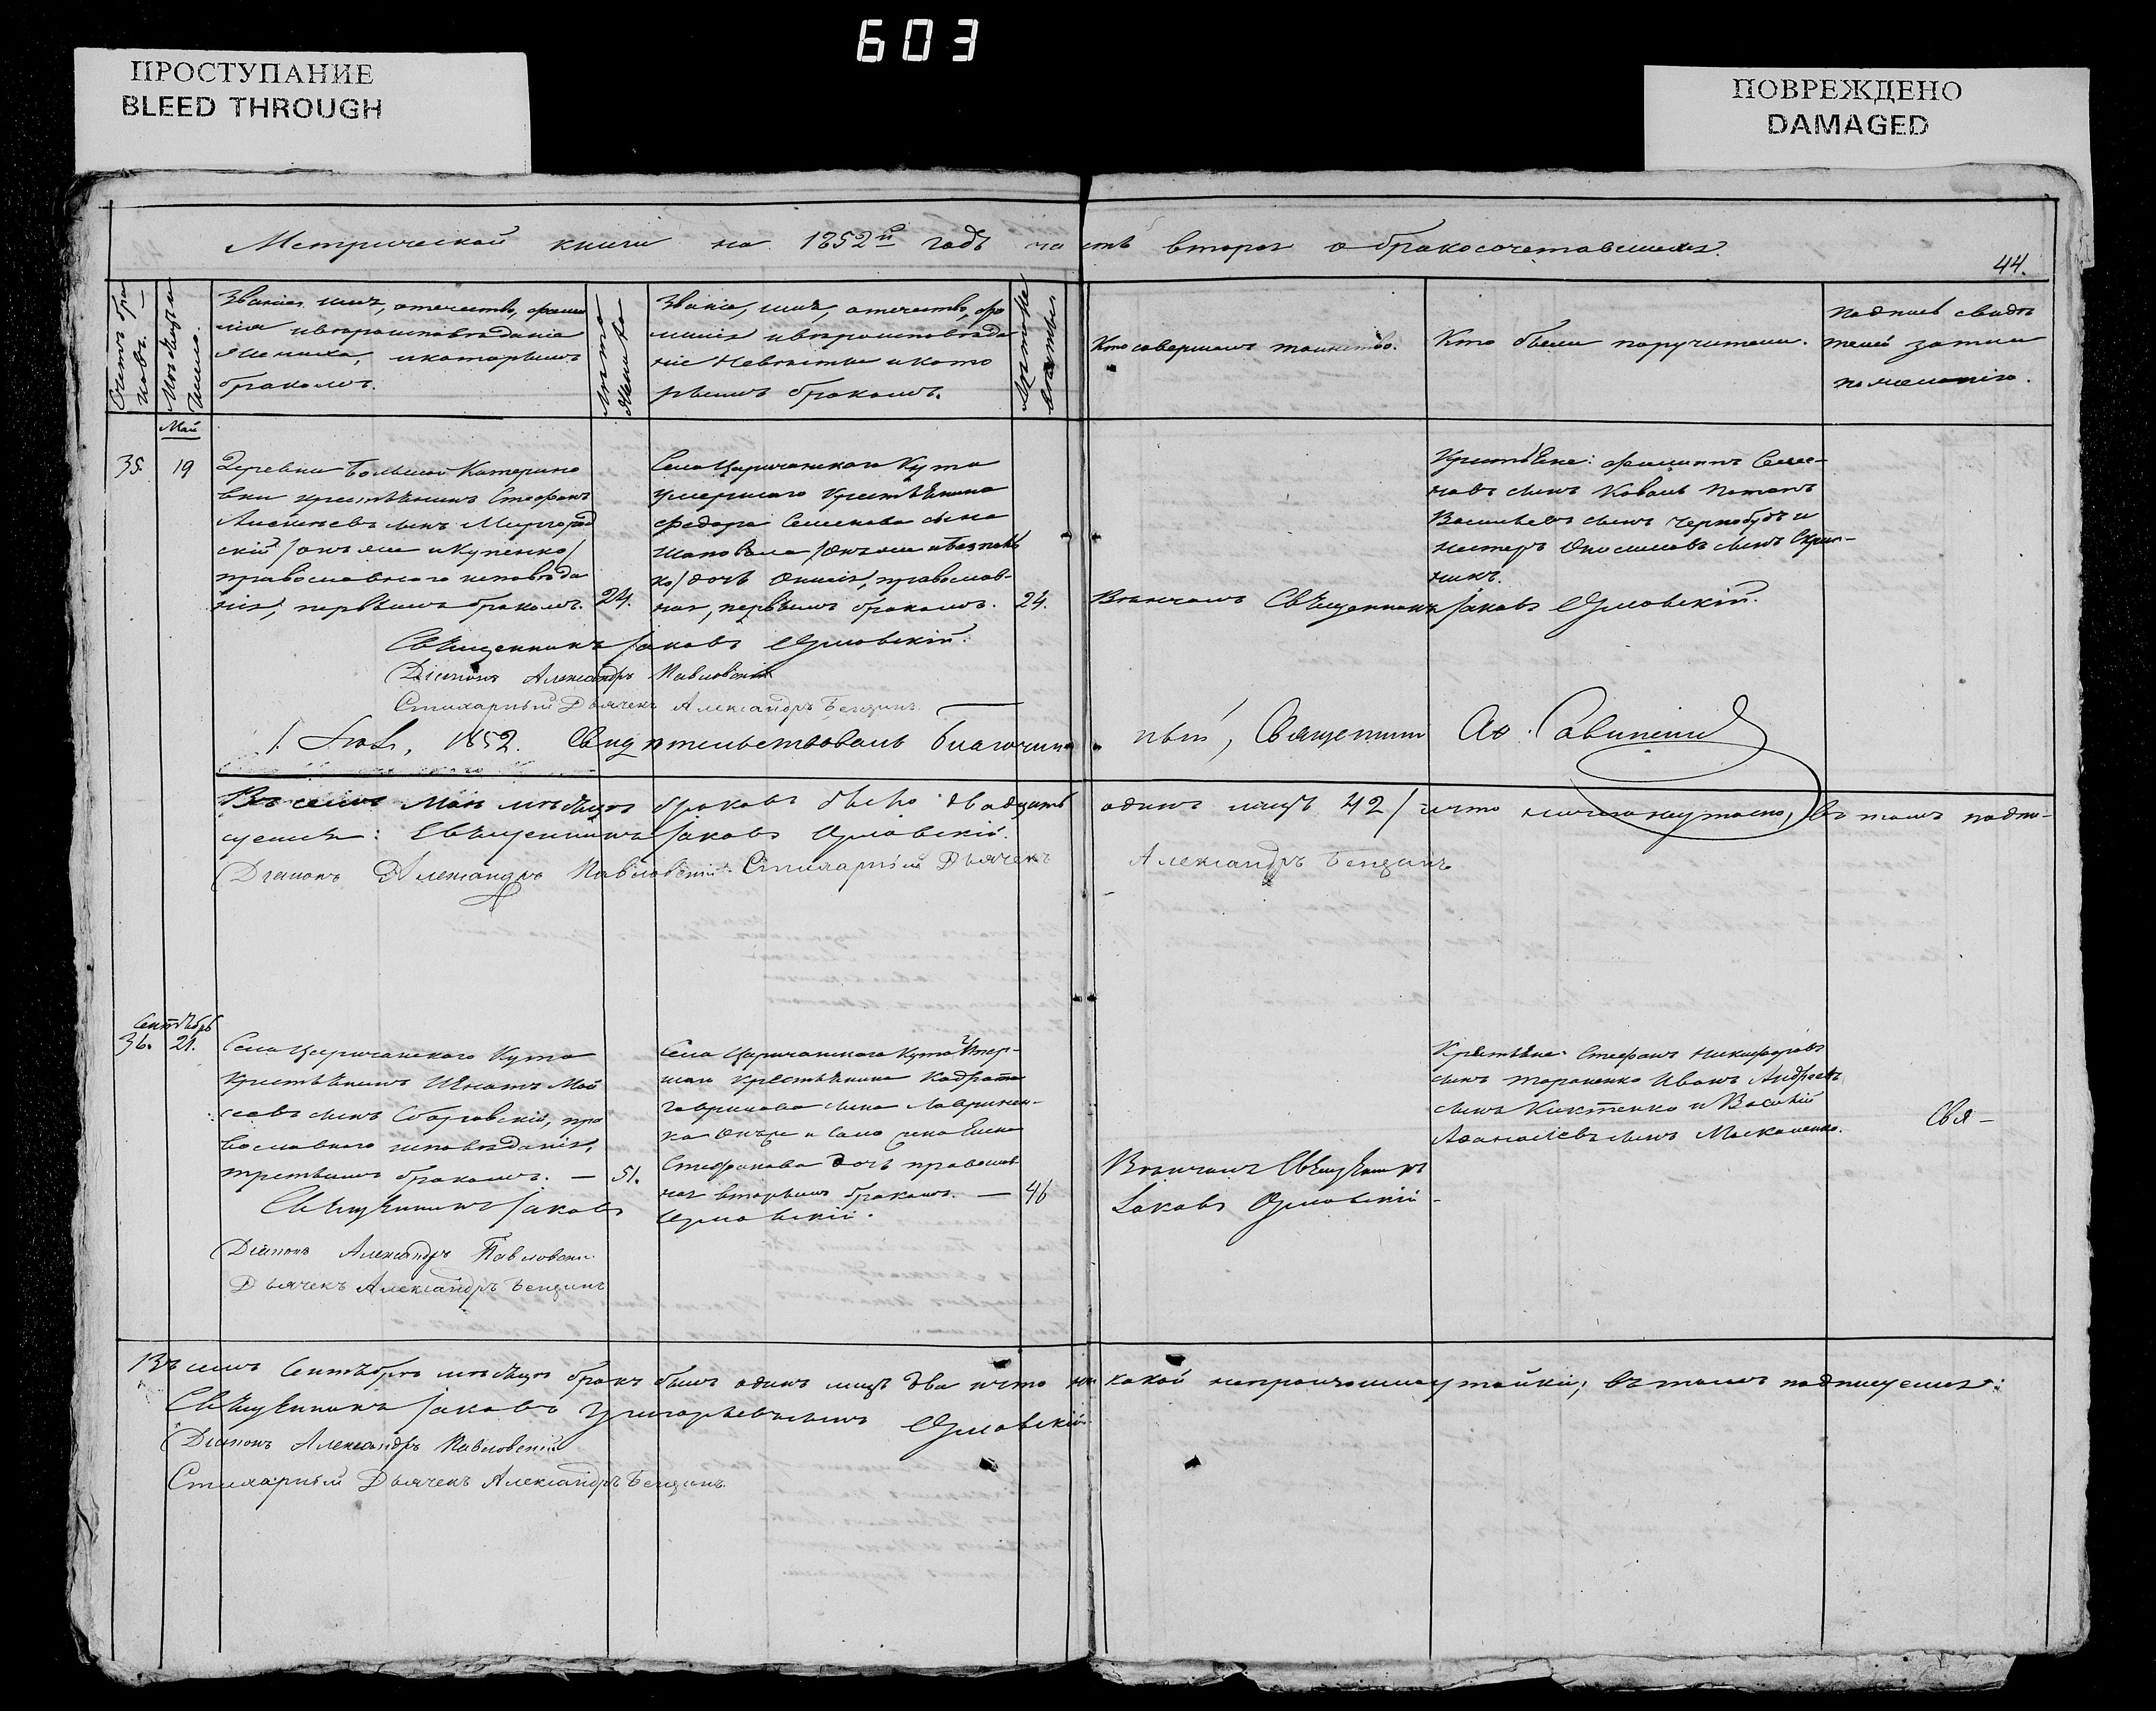 603
ПРОСТУПАНИЕ
BLEED THROUGH
ПОВРЕЖДЕНО
DAMAGED
Метрической книги на 1852й годъ часть вторая о бракосочетавшихся.
44.
Счетъ бра
ковъ.
Мѣсяцъ и
число.
Званіе, имя, отечество, фами
лія и вѣроисповѣданіе
жениха, и которымъ
бракомъ.
Лѣта
жениха
Званіе, имя, отечество, фа
милія и вѣроисповѣда
ніе невѣсты и кото
рымъ бракомъ.
Лѣта не
вѣсты
Кто совершалъ таинство.
Кто были поручители.
Подпись свидѣ
телей записи
по желанію.
Май
35. 19
Деревни Большой Катерино
вки крестьянинъ Стефанъ
Алексѣевъ сынъ Миргород
скій /онъ же и Купенко/
православнаго исповѣда
нія, первымъ бракомъ. 24.
Села Царичанскаго Кута
умершаго крестьянина
Федора Семенова сына
Шаповала /онъ же
ко/ дочь православ-
ная, первымъ бракомъ. 24.
Вѣнчалъ Священникъ Іаковъ Орловскій.
Крестьяне: Филиппъ Семе-
новъ сынъ Коваль Потапъ
Васильевъ сынъ Чернобудъ и
Нестеръ Онисимовъ сынъ Скрип-
никъ.
Священникъ Іаковъ Орловскій.
Діаконъ Александръ Павловскій
Стихарный Дьячекъ Александръ Бенданъ.
1852. Свидѣтельствовалъ Благочин
ный, Священникъ
Въ семъ Маѣ мѣсяцѣ браковъ было двадцать одинъ лицъ 42 / и что ничего не утаено, въ томъ подпи-
уемся: Священникъ Іаковъ Орловскій.
Діаконъ Александръ Павловскій Стихарный Дьячекъ Александръ Бенданъ
Сентябрь
36. 21.
Села Царичанскаго Кута
крестьянинъ Игнатъ Мой
сеевъ сынъ пра
вославнаго исповѣданія,
третьимъ бракомъ. — 51.
Села Царичанскаго Кута умер-
шаго крестьянина Кодрата
Гаврилова сына Лавринен-
ка жена Елена
Стефанова дочь православ
ная вторымъ бракомъ. — 46
Вѣнчалъ Священникъ
Іаковъ Орловскій
Крестьяне: Стефанъ Никифоровъ
сынъ Тараненко Иванъ Андреевъ
сынъ Киктенко и Василій
Афанасіевъ сынъ Москаленко.
Свя—
Священникъ Іаковъ Орловскій.
Діаконъ Александръ Павловскі.
Дьячекъ Александръ Бенданъ
Въ семъ Сентябрѣ мѣсяцѣ бракъ былъ одинъ лицъ два и что ни какой непроизошло утайки, въ томъ подписуемся:
Священникъ Іаковъ Григорьевъ сынъ Орловскій
Діаконъ Александръ Павловскій
Стихарный Дьячекъ Александръ Бенданъ.